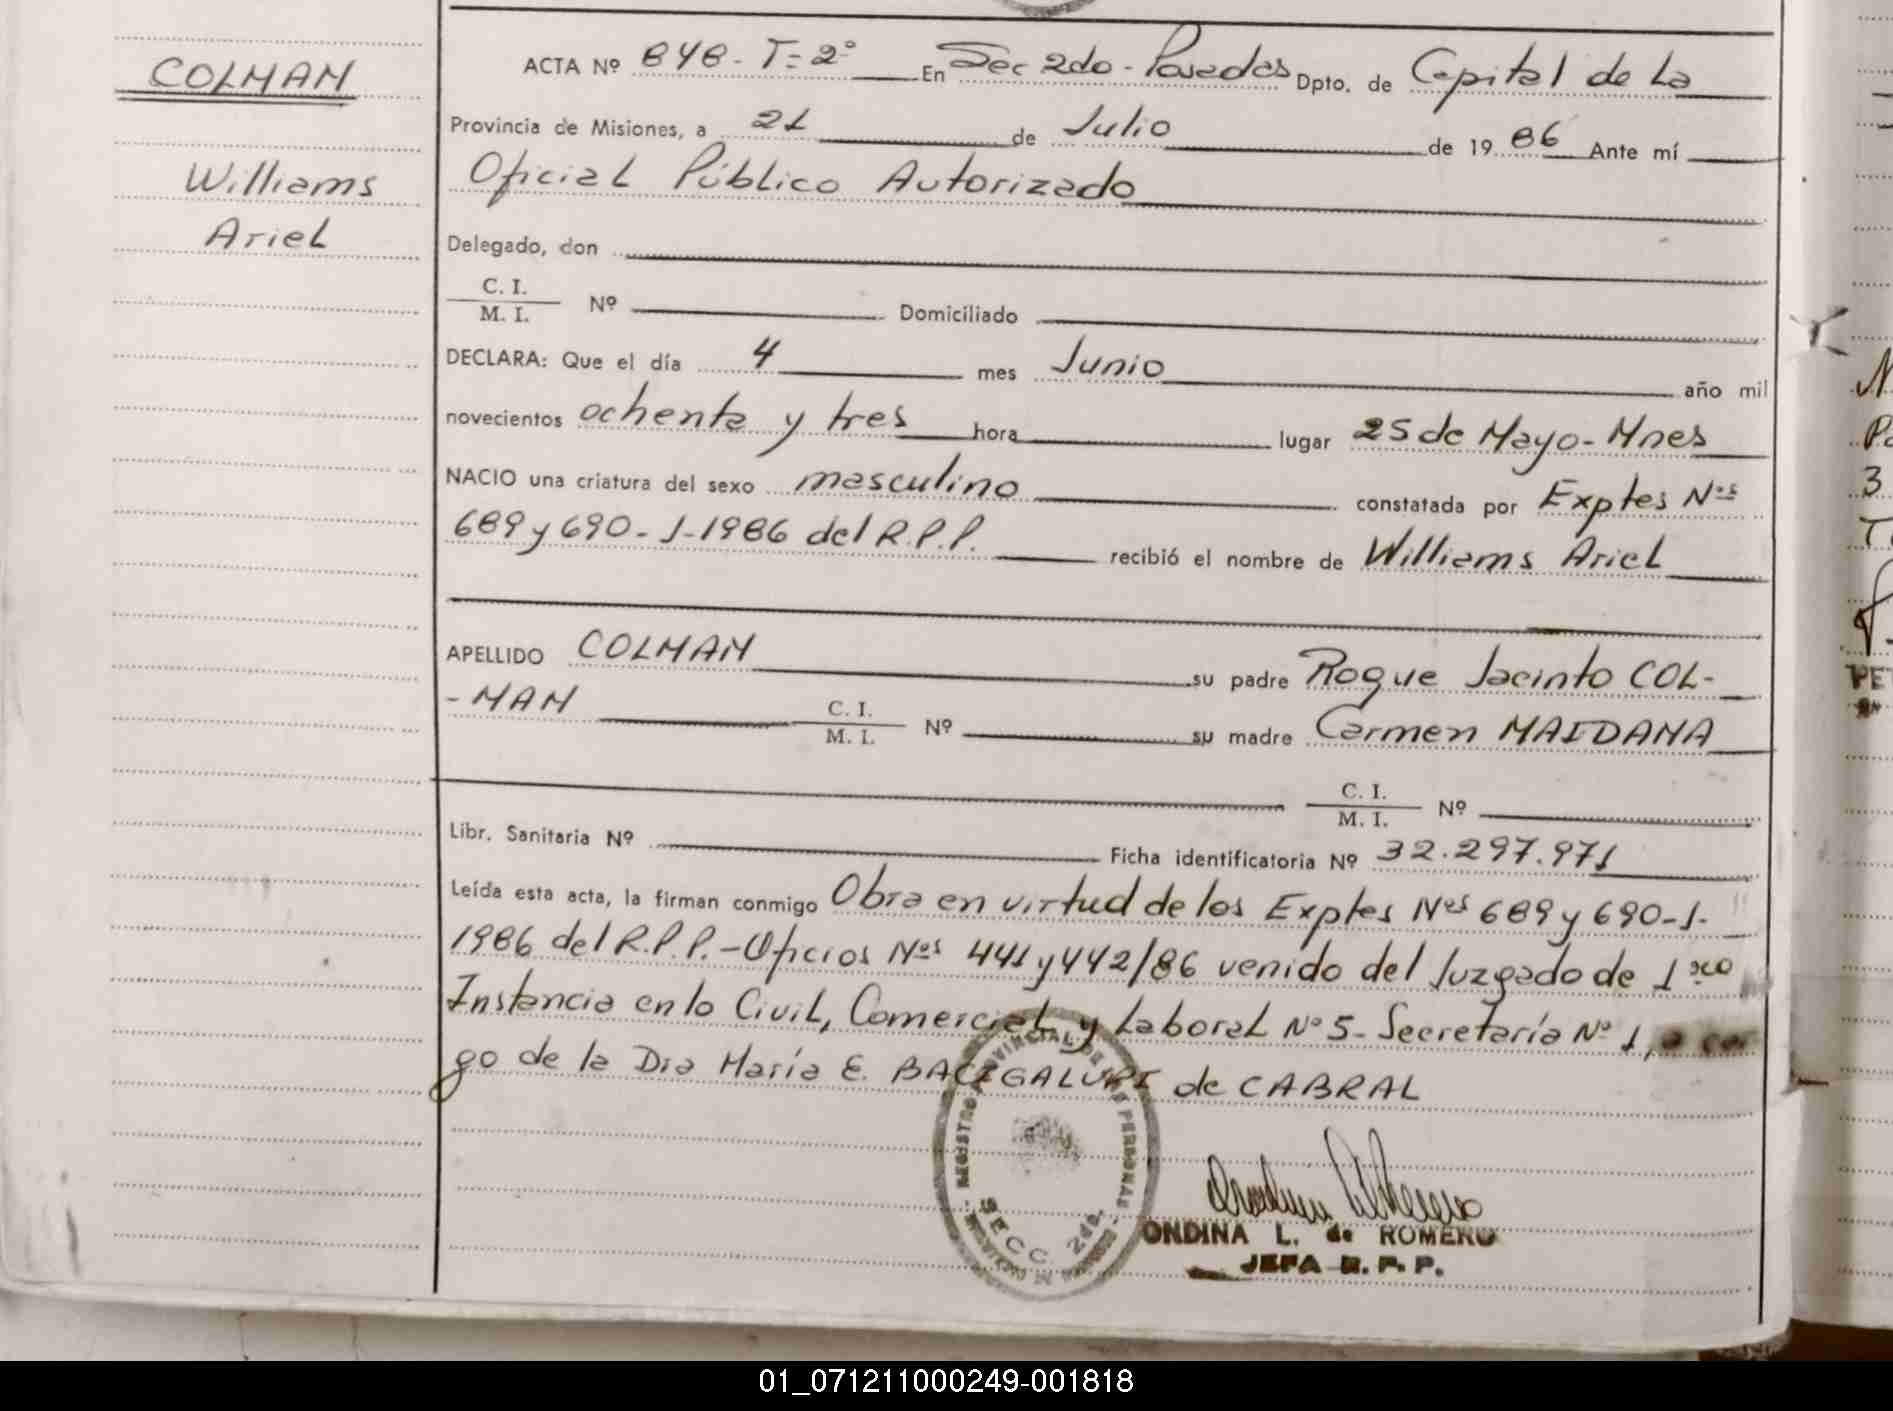 COLMAN
Williams
Ariel
ACTA Nº 848-T=2º En Sec 2do-Posadas Dpto. de Capital de La
Provincia de Misiones, a 21 de Julio de 1986 Ante mí
Oficial Público Autorizado
Delegado, don
C. I.
M. I. Nº Domiciliado
DECLARA: Que el día 4 mes Junio año mil
novecientos ochenta y tres hora lugar 25 de Mayo-Mnes
NACIO una criatura del sexo masculino constatada por Exptes Nos
689 y 690-J-1986 del R.P.P. recibió el nombre de Williams Ariel
APELLIDO COLMAN su padre Roque Jacinto COL-
-MAN C. I. M. I. Nº su madre Carmen MAIDANA
C. I. M. I. Nº
Libr. Sanitaria Nº Ficha identificatoria Nº 32.297.971
Leída esta acta, la firman conmigo Obra en virtud de los Exptes Nos 689 y 690-J-
1986 del R.P.P.-Oficios Nos 441 y 442/86 venido del Juzgado de 1ra
Instancia en lo Civil, Comercial y Laboral Nº 5-Secretaría Nº 1, a car
go de la Dra María E. BACIGALUPI de CABRAL
REGISTRO PROVINCIAL DE LAS PERSONAS
SECC. 2da.
ONDINA L. de ROMERO
JEFA R. P. P.
01_071211000249-001818